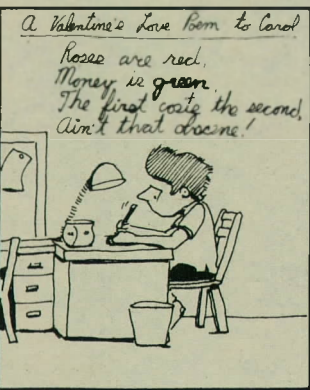 A Valentine's Love Poem to Carol
Roses are red,
Money is green,
The first costs the second,
Ain't that obscene!